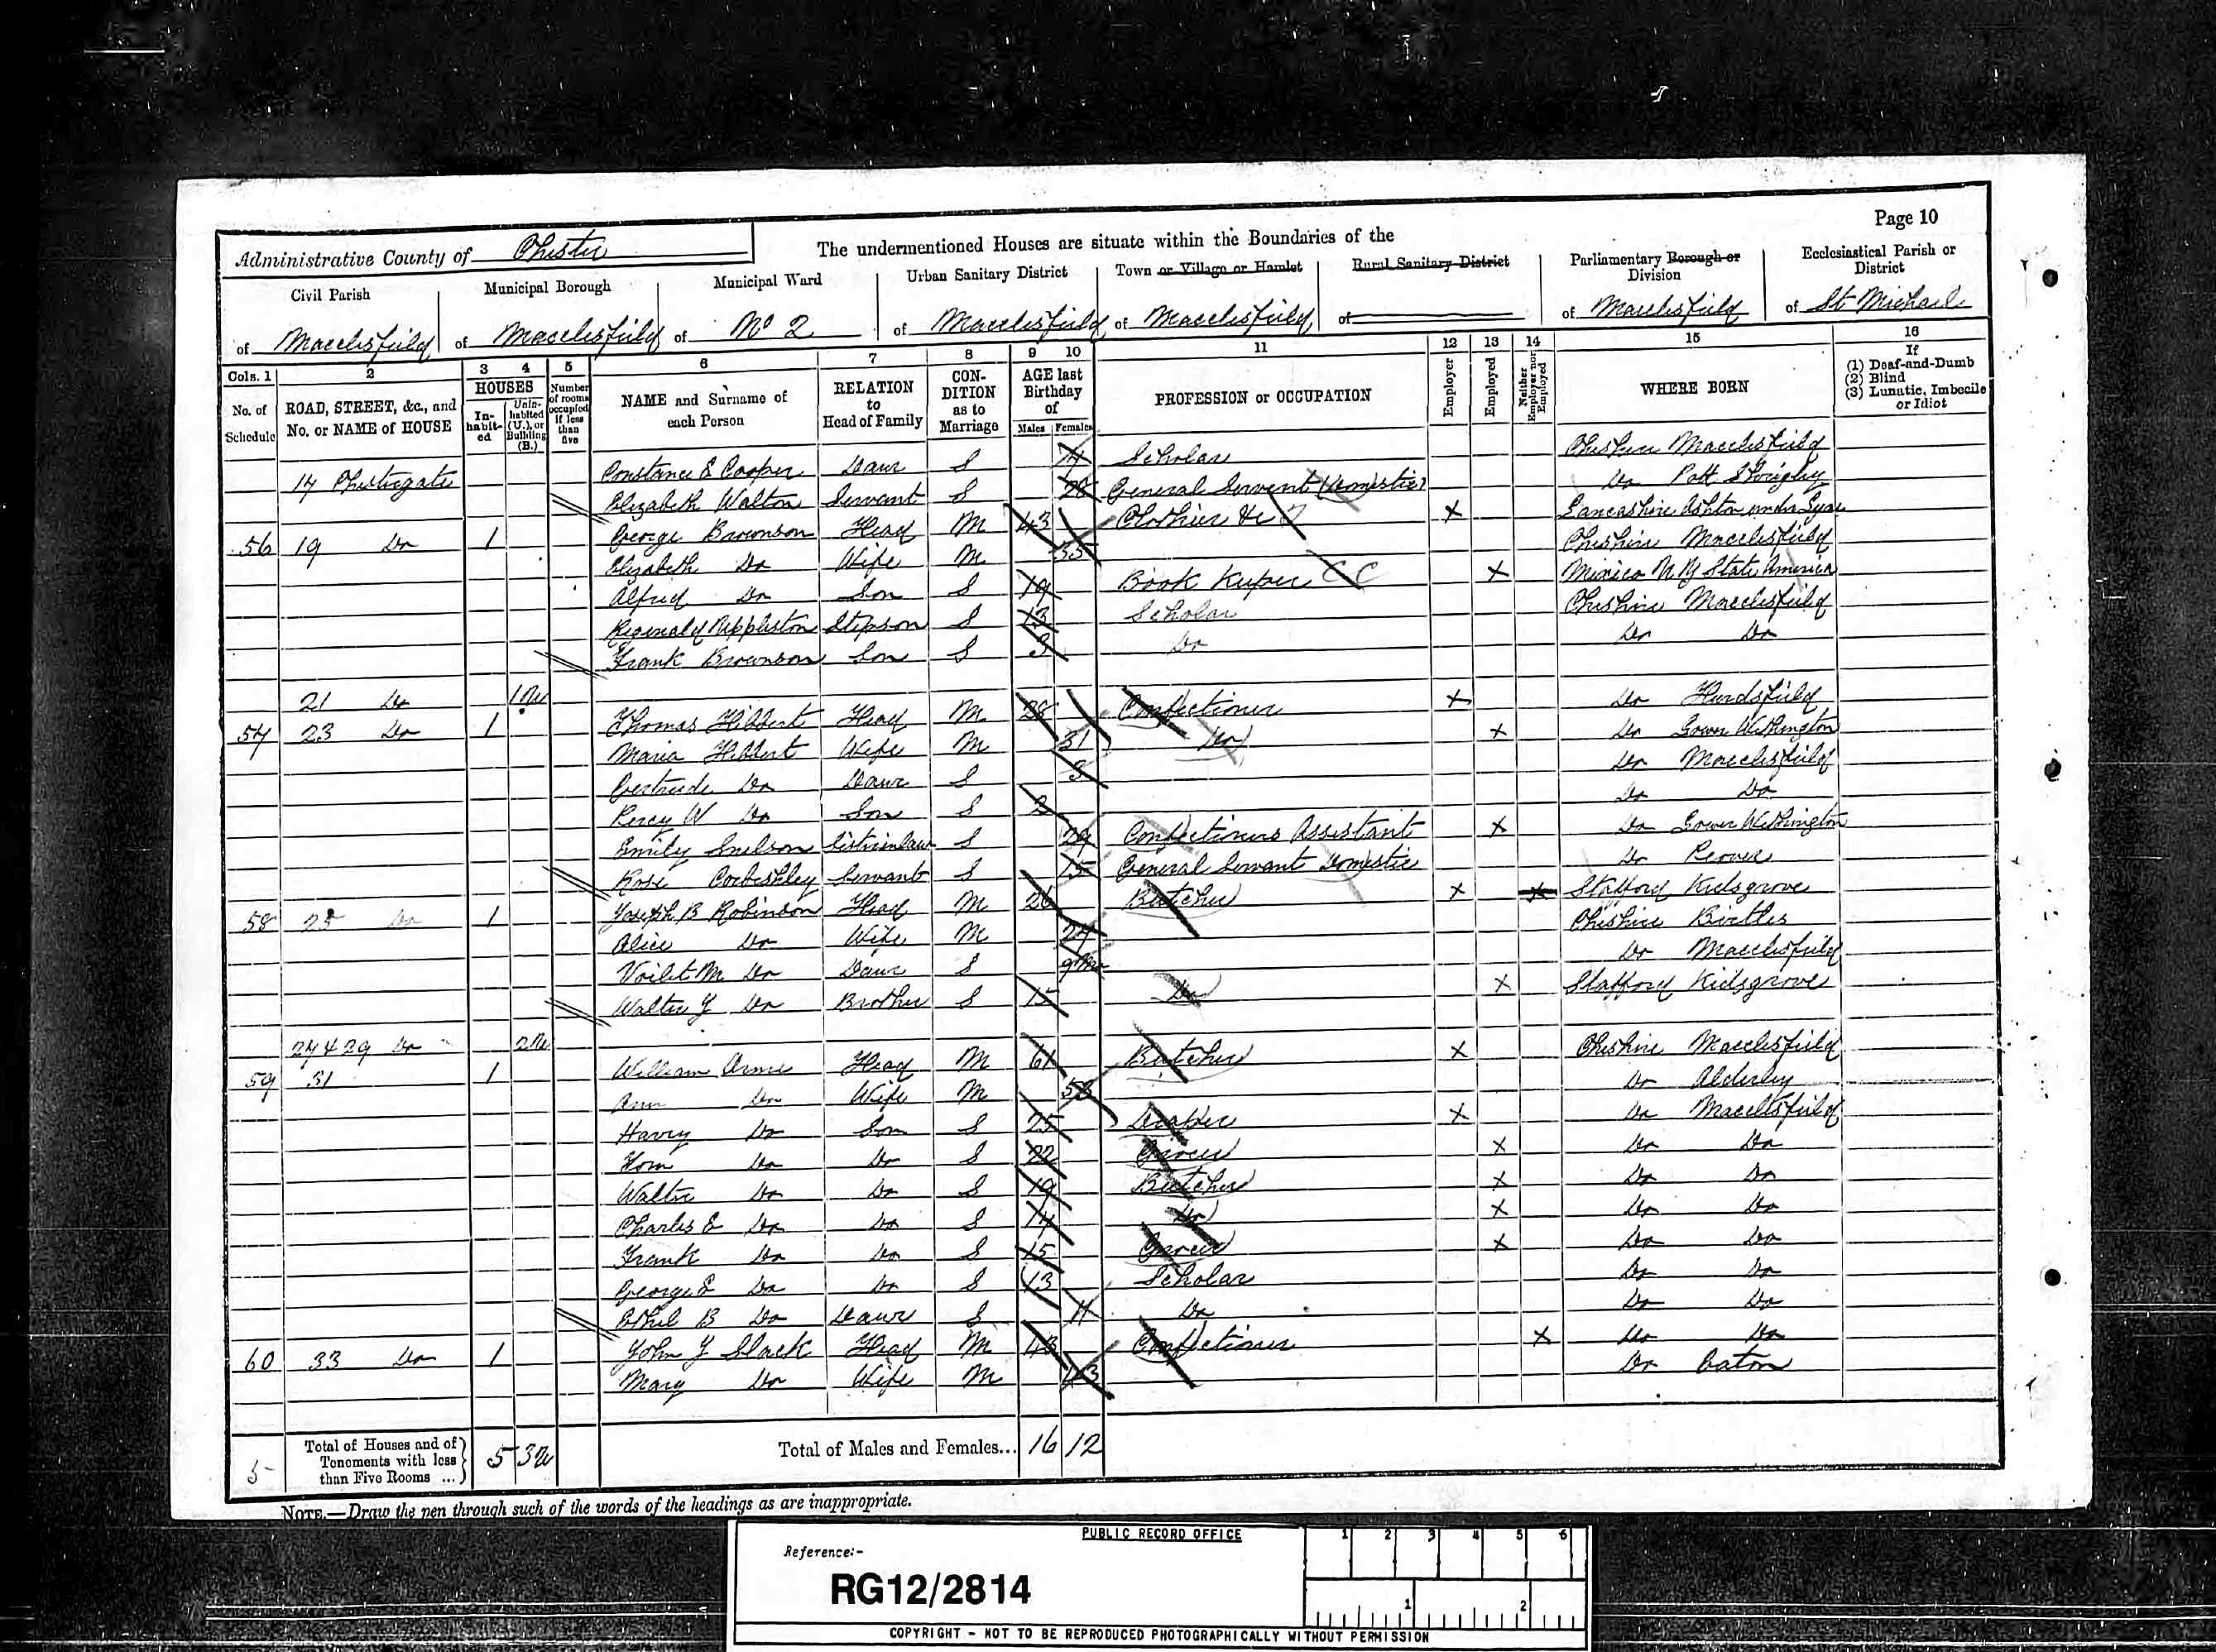 Page 10
Administrative County of Chester
The undermentioned Houses are situate within the Boundaries of the
Civil Parish
of Macclesfield
Municipal Borough
of Macclesfield
Municipal Ward
of No 2
Urban Sanitary District
of Macclesfield
Town or Village or Hamlet
of Macclesfield
Rural Sanitary District
of
Parliamentary Borough or Division
of Macclesfield
Ecclesiastical Parish or District
of St Michael
Cols. 1 2 3 4 5 6 7 8 9 10 11 12 13 14 15 16
No. of Schedule
ROAD, STREET, &c., and No. or NAME of HOUSE
HOUSES
In-habit-ed
Unin-habited (U.), or Building (B.)
Number of rooms occupied if less than five
NAME and Surname of each Person
RELATION to Head of Family
CON-DITION as to Marriage
AGE last Birthday of
Males Females
PROFESSION or OCCUPATION
Employer
Employed
Neither Employer nor Employed
WHERE BORN
If
(1) Deaf-and-Dumb
(2) Blind
(3) Lunatic, Imbecile or Idiot
17 Chestergate Constance E Cooper Daur S Scholar Cheshire Macclesfield
Elizabeth Walton Servant S General Servant (Domestic) Do Pott Shrigley
56 19 Do 1 George Brownson Head M 43 Clothier &c X Lancashire Ashton under Lyne
Elizabeth Do Wife M 35 Cheshire Macclesfield
Alfred Do Son S 19 Book Keeper CC X Mexico N Y State America
Reginald Appleston Stepson S 13 Scholar Cheshire Macclesfield
Frank Brownson Son S 3 Do Do Do
21 Do 1 U
57 23 Do 1 Thomas Hibbert Head M 28 Confectioner X Do Hurdsfield
Maria Hibbert Wife M 31 Do X Do Lower Withington
Gertrude Do Daur S 3 Do Macclesfield
Percy W Do Son S 2 Do Do
Emily Snelson Sisterinlaw S 29 Confectioners Assistant X Do Lower Withington
Rose Servant S 15 General Servant Domestic Do Peover
58 25 Do 1 Joseph B Robinson Head M 26 Butcher X X Stafford Kidsgrove
Alice Do Wife M 24 Cheshire Birtles
Voilet M Do Daur S 9 Mo Do Macclesfield
Walter J Do Brother S 15 Do X Stafford Kidsgrove
27 & 29 Do 2 U
59 31 1 William Orme Head M 61 Butcher X Cheshire Macclesfield
Ann Do Wife M 53 Do Alderley
Harry Do Son S 25 Draper X Do Macclesfield
Tom Do Do S 22 Grocer X Do Do
Walter Do Do S 19 Butcher X Do Do
Charles E Do Do S 17 Do X Do Do
Frank Do Do S 15 Grocer X Do Do
George E Do Do S 13 Scholar Do Do
Ethel B Do Daur S 11 Do Do Do
60 33 Do 1 John J Slack Head M 43 Confectioner X Do Do
Mary Do Wife M 43 Do Eaton
5 Total of Houses and of Tenements with less than Five Rooms ... 5 3 U Total of Males and Females... 16 12
NOTE.—Draw the pen through such of the words of the headings as are inappropriate.
PUBLIC RECORD OFFICE
Reference:-
RG12/2814
1 2 3 4 5 6
1 2
COPYRIGHT - NOT TO BE REPRODUCED PHOTOGRAPHICALLY WITHOUT PERMISSION